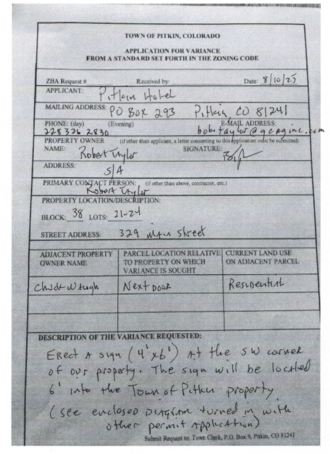 TOWN OF PITKIN, COLORADO
APPLICATION FOR VARIANCE
FROM A STANDARD SET FORTH IN THE ZONING CODE
ZBA Request # Received by: Date: 8/10/25
APPLICANT: Pitkin Hotel
MAILING ADDRESS: PO BOX 293 Pitkin, CO 81241
PHONE: (day) (Evening) E-MAIL ADDRESS:
228 326 2830
PROPERTY OWNER (if other than applicant, a letter consenting to this application must be submitted)
NAME: Robert Taylor SIGNATURE:
ADDRESS: S/A
PRIMARY CONTACT PERSON: (if other than above, contractor, etc.)
Robert Taylor
PROPERTY LOCATION/DESCRIPTION:
BLOCK: 38 LOTS: 21-24
STREET ADDRESS: 329 Main Street
ADJACENT PROPERTY OWNER NAME PARCEL LOCATION RELATIVE TO PROPERTY ON WHICH VARIANCE IS SOUGHT CURRENT LAND USE ON ADJACENT PARCEL
Next Door Residential
DESCRIPTION OF THE VARIANCE REQUESTED:
Erect a sign (4'x6') At the SW corner
of our property. The sign will be located
6' into the Town of Pitkin property
(see enclosed Diagram turned in with
other permit Application)
Submit Request to: Town Clerk, P.O. Box 9, Pitkin, CO 81241